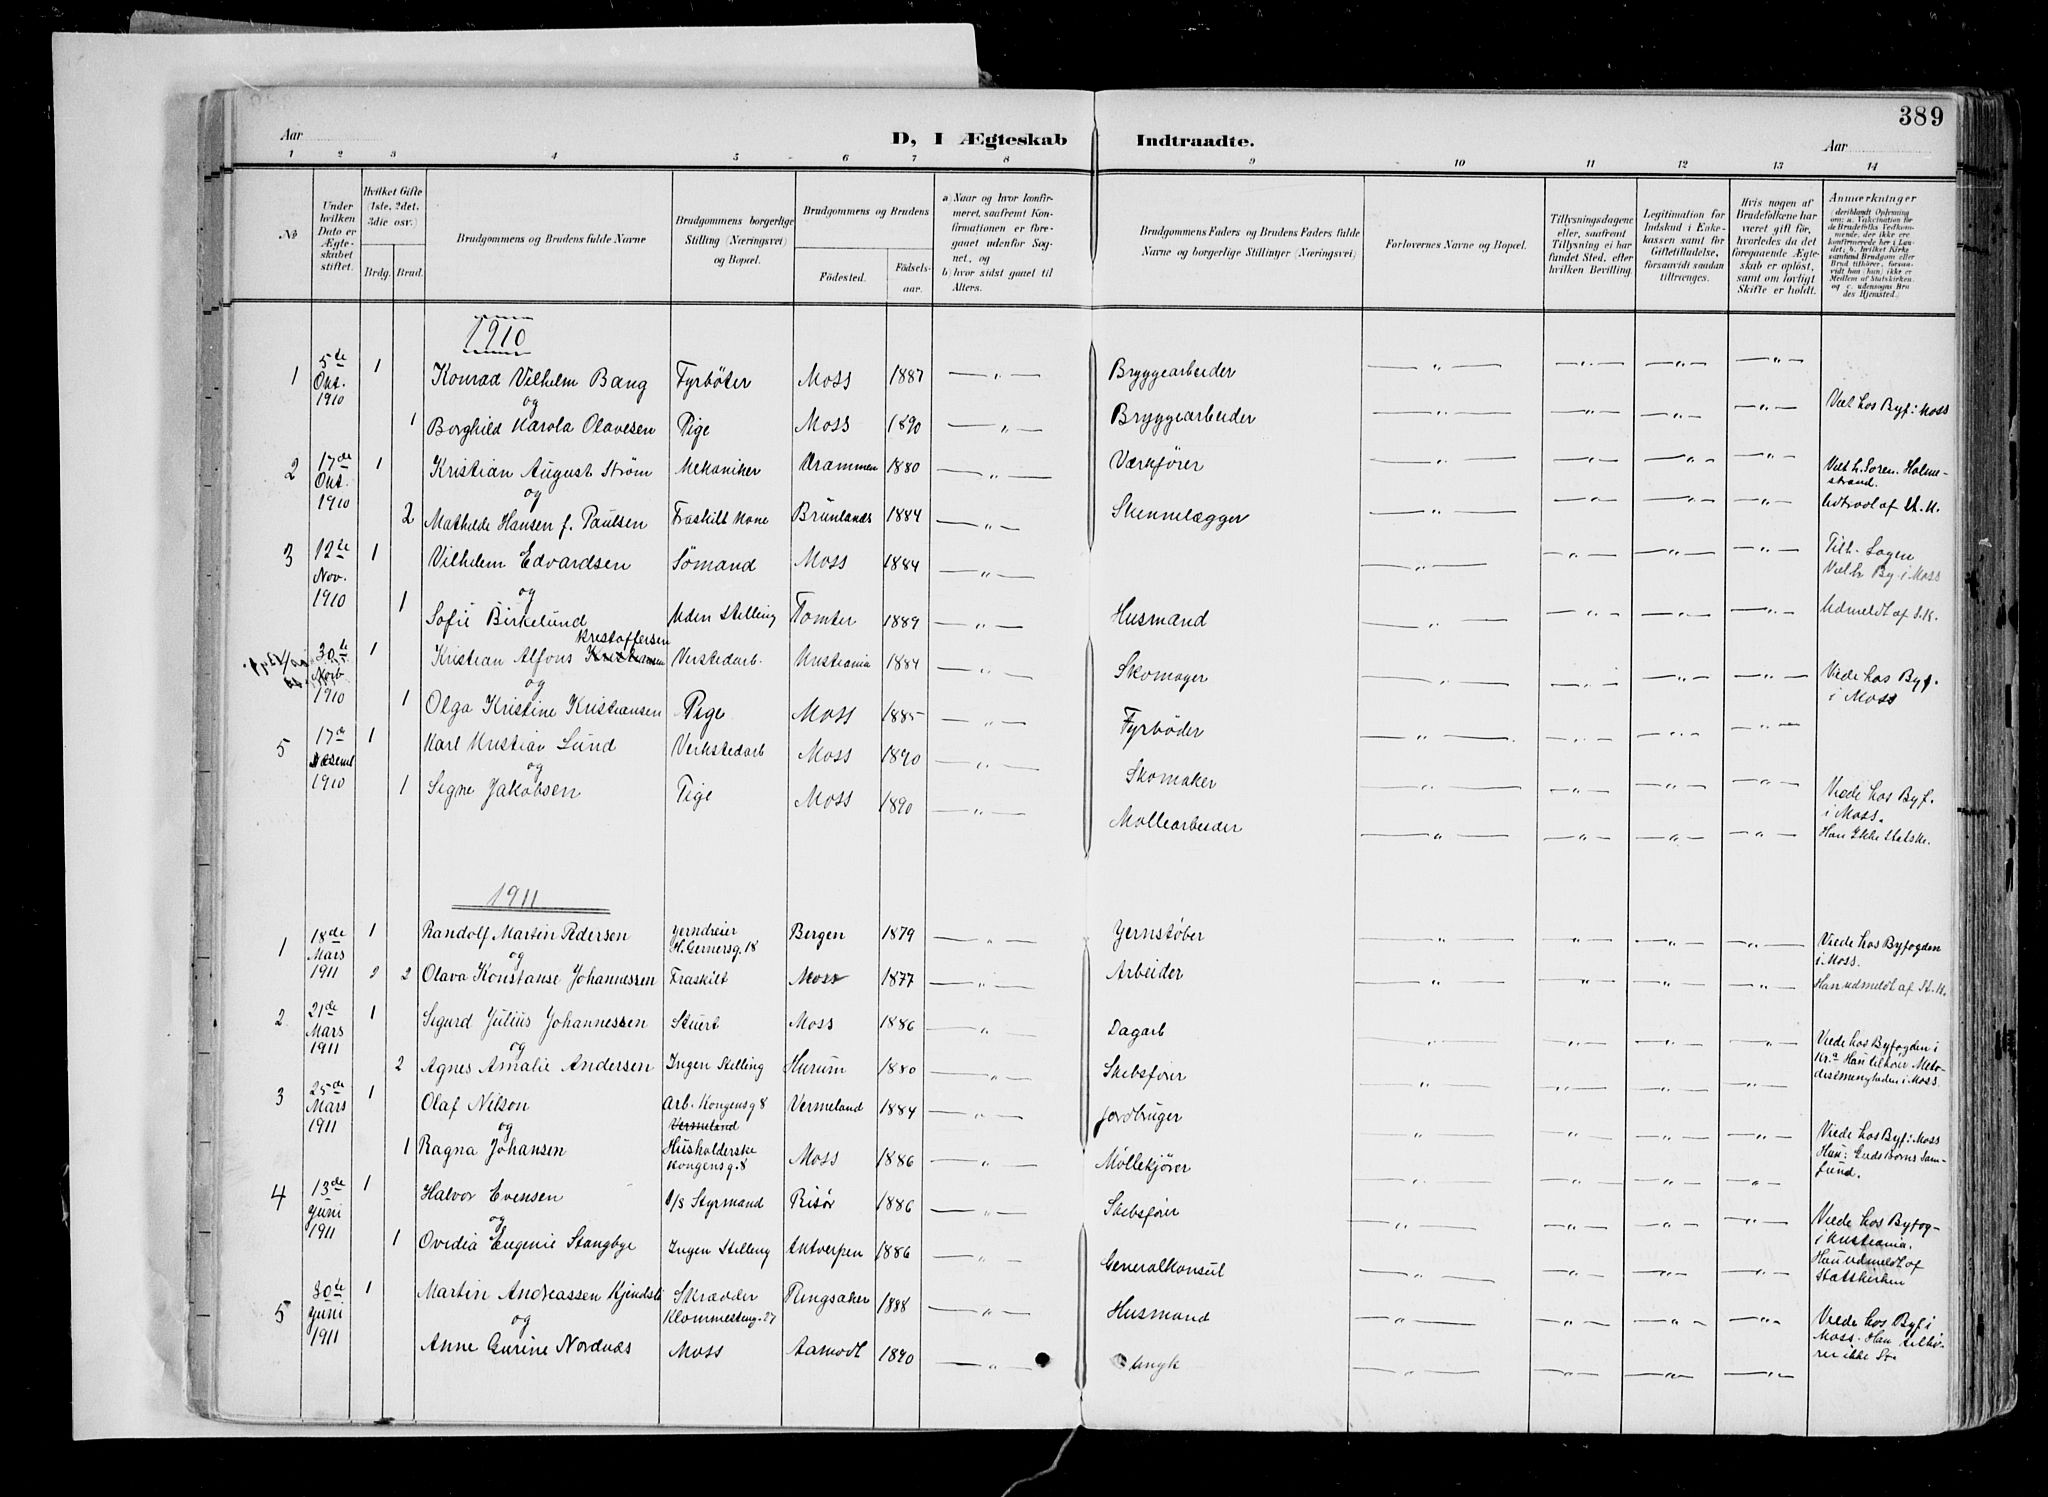 389
Aar
D, I Ægteskab Indtraadte.
Aar
1 2 3 4 5 6 7 8 9 10 11 12 13 14
No
Under hvilken Dato er Ægteskabet stiftet.
Hvilket Gifte (1ste, 2det, 3die osv.)
Brdg. Brud.
Brudgommens og Brudens fulde Navne
Brudgommens borgerlige Stilling (Næringsvei) og Bopæl.
Brudgommens og Brudens
Fødested. Fødselsaar.
a Naar og hvor konfirmeret, saafremt Konfirmationen er foregaaet udenfor Sognet, og
b) hvor sidst gaaet til Alters.
Brudgommens Faders og Brudens Faders fulde Navne og borgerlige Stillinger (Næringsvei)
Forlovernes Navne og Bopæl.
Tillysningsdagene eller, saafremt Tillysning ei har fundet Sted, efter hvilken Bevilling.
Legitimation for Indskud i Enkekassen samt for Giftetilladelse, forsaavidt saadan tiltrænges.
Hvis nogen af Brudefolkene har været gift før, hvorledes da det foregaaende Ægteskab er opløst, samt om lovligt Skifte er holdt.
Anmerkninger
1910
1 5te Okt. 1910 1 Konrad Vilhelm Bang Fyrbøter Moss 1887 Bryggearbeider
og
1 Borghild Karola Olavesen Pige Moss 1890 Bryggearbeider Viet hos Byf i Moss
2 17de Okt. 1910 1 Kristian August Strøm Mekaniker Drammen 1880 Værkfører Viet h. Soren. Holmestrand.
og
2 Mathilde Hansen f. Paulsen Fraskilt Kone Brunlanæs 1884 Stennelægger Udtraadt af St. K.
3 12te Nov. 1910 1 Vilhelm Edvardsen Sømand Moss 1884
og
1 Sofie Birkelund Uden Stilling Tomter 1889 Husmand Udmeldt af S.K.
30te Novb 1910 1 Kristian Alfons Kristoffersen Verstedarb. Kristiania 1884 Skomager
og
1 Olga Kristine Kristiansen Pige Moss 1885 Fyrbøder Viede hos Byf. i Moss
5 17de Desemb 1910 1 Karl Kristian Lund Verkstedarb Moss 1890 Skomaker
og
1 Signe Jakobsen Pige Moss 1890 Møllearbeider Viede hos Byf. i Moss.
Han Ikke Statske.
1911
1 18de Mars 1911 1 Randolf Martin Pedersen Jerndreier H. Gernersg. 18 Bergen 1879 Jernstøber Viede hos Byfogden i Moss.
og
2 2 Olava Konstanse Johannessen Fraskilt Moss 1877 Arbeider Han udmeldt af St. K.
2 21de Mars 1911 1 Sigurd Julius Johannessen Stuert Moss 1886 Dagarb
og
2 Agnes Amalie Andersen Ingen Stilling Hurum 1880 Skibsfører Viede hos Byfogden i Kr.a Han tilhører Metodistmenigheden i Moss.
3 25de Mars 1911 1 Olaf Nilson Arb. Kongensg 8 Vermeland Vermeland 1884 Jordbruger
og
1 Ragna Johansen Husholderske Kongensg. 8 Moss 1886 Møllekjører Viede hos Byf i Moss Han: Guds Børns Samfund.
4 13de Juni 1911 1 Halvor Evensen Styrmand Risør 1886 Skibsfører Viede hos Byfog- i Kristiania.
og
1 Ovidia Eugenie Stangbye Ingen Stilling Antverpen 1886 Generalkonsul Han udmeldt af Statskirken
5 30te Juni 1911 1 Martin Andreassen Skrædder Ringsaker 1888 Husmand Viede hos Byf i Moss. Han tilhører ikke St.
og
Anne Gurine Nordnæs Moss Aamodt 1890 Ungk